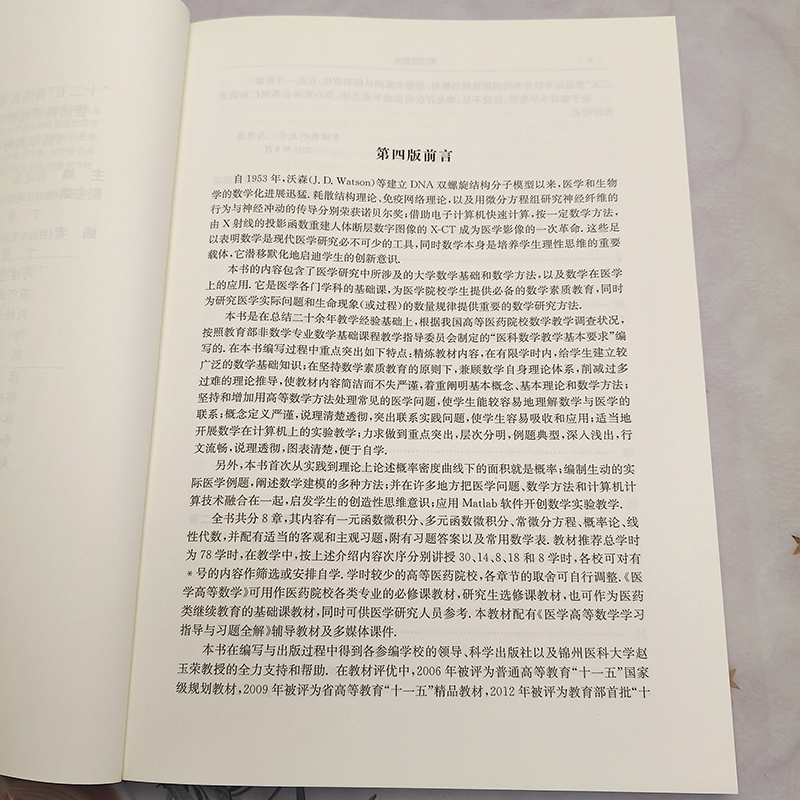 第四版前言
自 1953 年，沃森(J. D. Watson)等建立 DNA 双螺旋结构分子模型以来，医学和生物
学的数学化进展迅猛. 耗散结构理论、免疫网络理论，以及用微分方程组研究神经纤维的
行为与神经冲动的传导分别荣获诺贝尔奖；借助电子计算机快速计算，按一定数学方法，
由 X 射线的投影函数重建人体断层数字图像的 X-CT 成为医学影像的一次革命. 这些足
以表明数学是现代医学研究必不可少的工具，同时数学本身是培养学生理性思维的重要
载体，它潜移默化地启迪学生的创新意识.
本书的内容包含了医学研究中所涉及的大学数学基础和数学方法，以及数学在医学
上的应用. 它是医学各门学科的基础课，为医学院校学生提供必备的数学素质教育，同时
为研究医学实际问题和生命现象(或过程)的数量规律提供重要的数学研究方法.
本书是在总结二十余年教学经验基础上，根据我国高等医药院校数学教学调查状况，
按照教育部非数学专业数学基础课程教学指导委员会制定的“医科数学教学基本要求”编
写的. 在本书编写过程中重点突出如下特点：精炼教材内容，在有限学时内，给学生建立较
广泛的数学基础知识；在坚持数学素质教育的原则下，兼顾数学自身理论体系，削减过多
过难的理论推导，使教材内容简洁而不失严谨，着重阐明基本概念、基本理论和数学方法；
坚持和增加用高等数学方法处理常见的医学问题，使学生能较容易地理解数学与医学的
联系；概念定义严谨，说理清楚透彻，突出联系实践问题，使学生容易吸收和应用；适当地
开展数学在计算机上的实验教学；力求做到重点突出，层次分明，例题典型，深入浅出，行
文流畅，说理透彻，图表清楚，便于自学.
另外，本书首次从实践到理论上论述概率密度曲线下的面积就是概率；编制生动的实
际医学例题，阐述数学建模的多种方法；并在许多地方把医学问题、数学方法和计算机计
算技术融合在一起，启发学生的创造性思维意识；应用 Matlab 软件开创数学实验教学.
全书共分 8 章，其内容有一元函数微积分、多元函数微积分、常微分方程、概率论、线
性代数，并配有适当的客观和主观习题，附有习题答案以及常用数学表. 教材推荐总学时
为 78 学时，在教学中，按上述介绍内容次序分别讲授 30、14、8、18 和 8 学时，各校可对有
* 号的内容作筛选或安排自学. 学时较少的高等医药院校，各章节的取舍可自行调整.《医
学高等数学》可用作医药院校各类专业的必修课教材，研究生选修课教材，也可作为医药
类继续教育的基础课教材，同时可供医学研究人员参考. 本教材配有《医学高等数学学习
指导与习题全解》辅导教材及多媒体课件.
本书在编写与出版过程中得到各参编学校的领导、科学出版社以及锦州医科大学赵
玉荣教授的全力支持和帮助. 在教材评优中，2006 年被评为普通高等教育“十一五”国家
级规划教材，2009 年被评为省高等教育“十一五”精品教材，2012 年被评为教育部首批“十